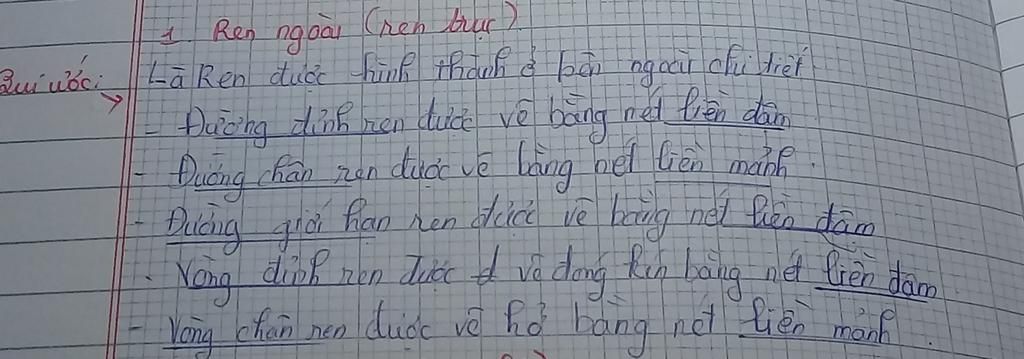 1 Ren ngoài (ren trục)
Là Ren được hình thành ở bên ngoài chi tiết
Qui ước:
- Đường đỉnh ren được vẽ bằng nét liền đậm
- Đường chân ren được vẽ bằng nét liền mảnh.
- Đường giới hạn ren được vẽ bằng nét liền đậm
- Vòng đỉnh ren được vẽ đóng kín bằng nét liền đậm
- Vòng chân ren được vẽ hở bằng nét liền mảnh.